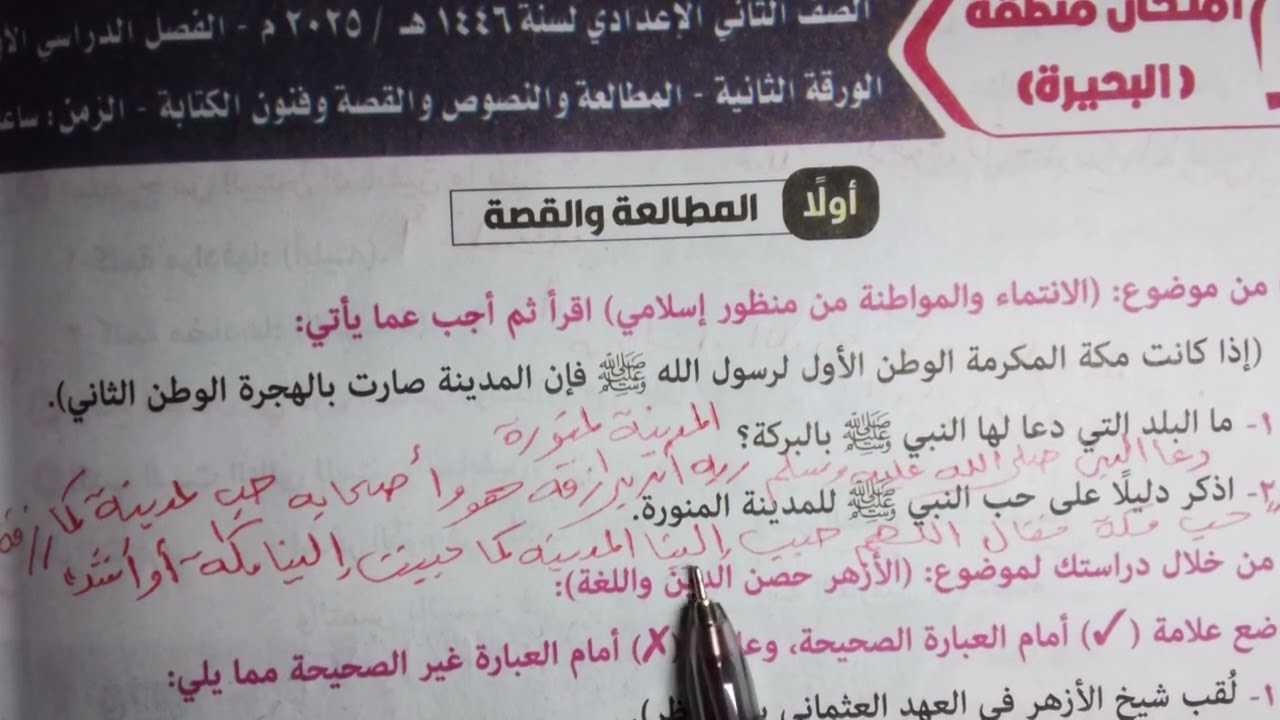 امتحان منطقة
(البحيرة)
الصف الثاني الإعدادي لسنة ١٤٤٦ هـ / ٢٠٢٥ م - الفصل الدراسي
الورقة الثانية - المطالعة والنصوص والقصة وفنون الكتابة - الزمن:
أولًا المطالعة والقصة
من موضوع: (الانتماء والمواطنة من منظور إسلامي) اقرأ ثم أجب عما يأتي:
(إذا كانت مكة المكرمة الوطن الأول لرسول الله ﷺ فإن المدينة صارت بالهجرة الوطن الثاني).
١- ما البلد التي دعا لها النبي ﷺ بالبركة؟ المدينة المنورة
دعا النبي صلى الله عليه وسلم ربه أن يرزقه هو وأصحابه حب المدينة كما رزقه
٢- اذكر دليلًا على حب النبي ﷺ للمدينة المنورة.
حب مكة فقال اللهم حبب إلينا المدينة كما حببت إلينا مكة أو أشد
من خلال دراستك لموضوع: (الأزهر حصن الدين واللغة):
ضع علامة (✓) أمام العبارة الصحيحة، (✗) أمام العبارة غير الصحيحة مما يلي:
١- لُقب شيخ الأزهر في العهد العثماني